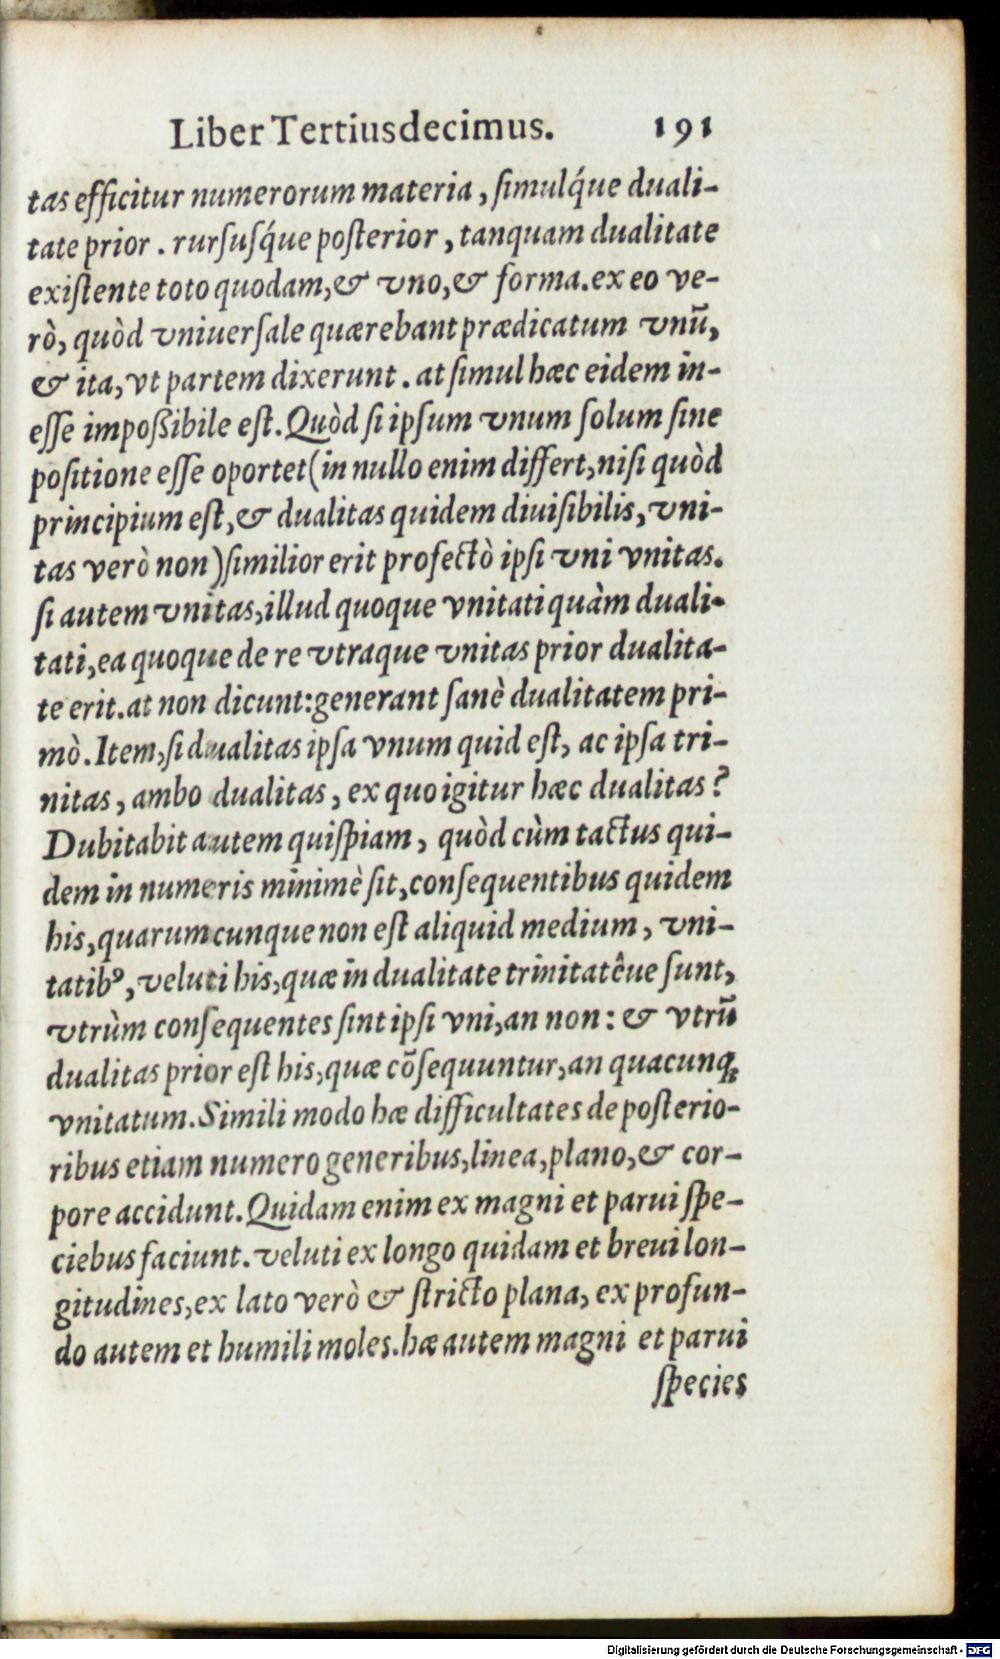 Liber Tertiusdecimus. 191
tas efficitur numerorum materia, simulq́ue duali-
tate prior. rursusq́ue posterior, tanquam dualitate
existente toto quodam, & vno, & forma. ex eo ve-
rò, quòd vniuersale quærebant prædicatum vnū,
& ita, vt partem dixerunt. at simul hæc eidem in-
esse impoßibile est. Quòd si ipsum vnum solum sine
positione esse oportet (in nullo enim differt, nisi quòd
principium est, & dualitas quidem diuisibilis, vni-
tas verò non) similior erit profectò ipsi vni vnitas.
si autem vnitas, illud quoque vnitati quàm duali-
tati, ea quoque de re vtraque vnitas prior dualita-
te erit. at non dicunt: generant sanè dualitatem pri-
mò. Item, si dualitas ipsa vnum quid est, ac ipsa tri-
nitas, ambo dualitas, ex quo igitur hæc dualitas?
Dubitabit autem quispiam, quòd cùm tactus qui-
dem in numeris minimè sit, consequentibus quidem
his, quarumcunque non est aliquid medium, vni-
tatibꝰ, veluti his, quæ in dualitate trinitatêue sunt,
vtrùm consequentes sint ipsi vni, an non: & vtrū
dualitas prior est his, quæ cōsequuntur, an quacunq;
vnitatum. Simili modo hæ difficultates de posterio-
ribus etiam numero generibus, linea, plano, & cor-
pore accidunt. Quidam enim ex magni et parui spe-
ciebus faciunt. veluti ex longo quidam et breui lon-
gitudines, ex lato verò & stricto plana, ex profun-
do autem et humili moles. hæ autem magni et parui
species
Digitalisierung gefördert durch die Deutsche Forschungsgemeinschaft - DFG